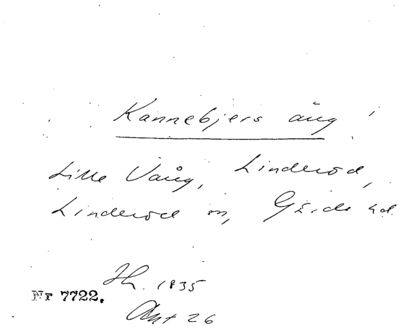 Kannebjers äng
Lille Vång, Linderöd,
Linderöd sn, Gärds hd
Sk. 1835
Nr 7722.
Akt 26